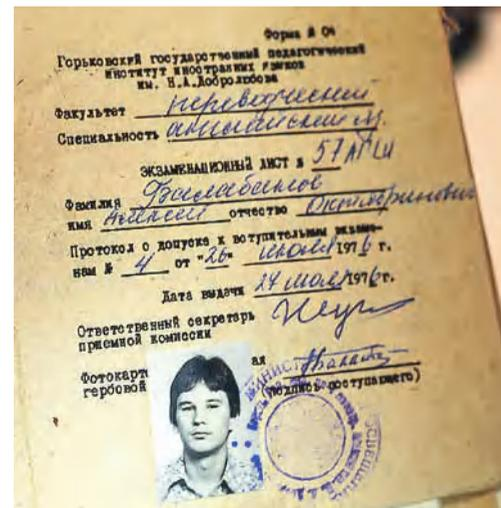 Форма № 04
Горьковский государственный педагогический
институт иностранных языков
им. Н.А.Добролюбова
Факультет переводческий
Специальность английский яз.
ЭКЗАМЕНАЦИОННЫЙ ЛИСТ № 57
Фамилия Балабанов
имя Алексей отчество Октябринович
Протокол о допуске к вступительным экзаме-
нам № 4 от "26" июля 1976 г.
Дата выдачи 27 июля 1976 г.
Ответственный секретарь
приемной комиссии
Фотокарт ая
гербовой (подпись поступающего)